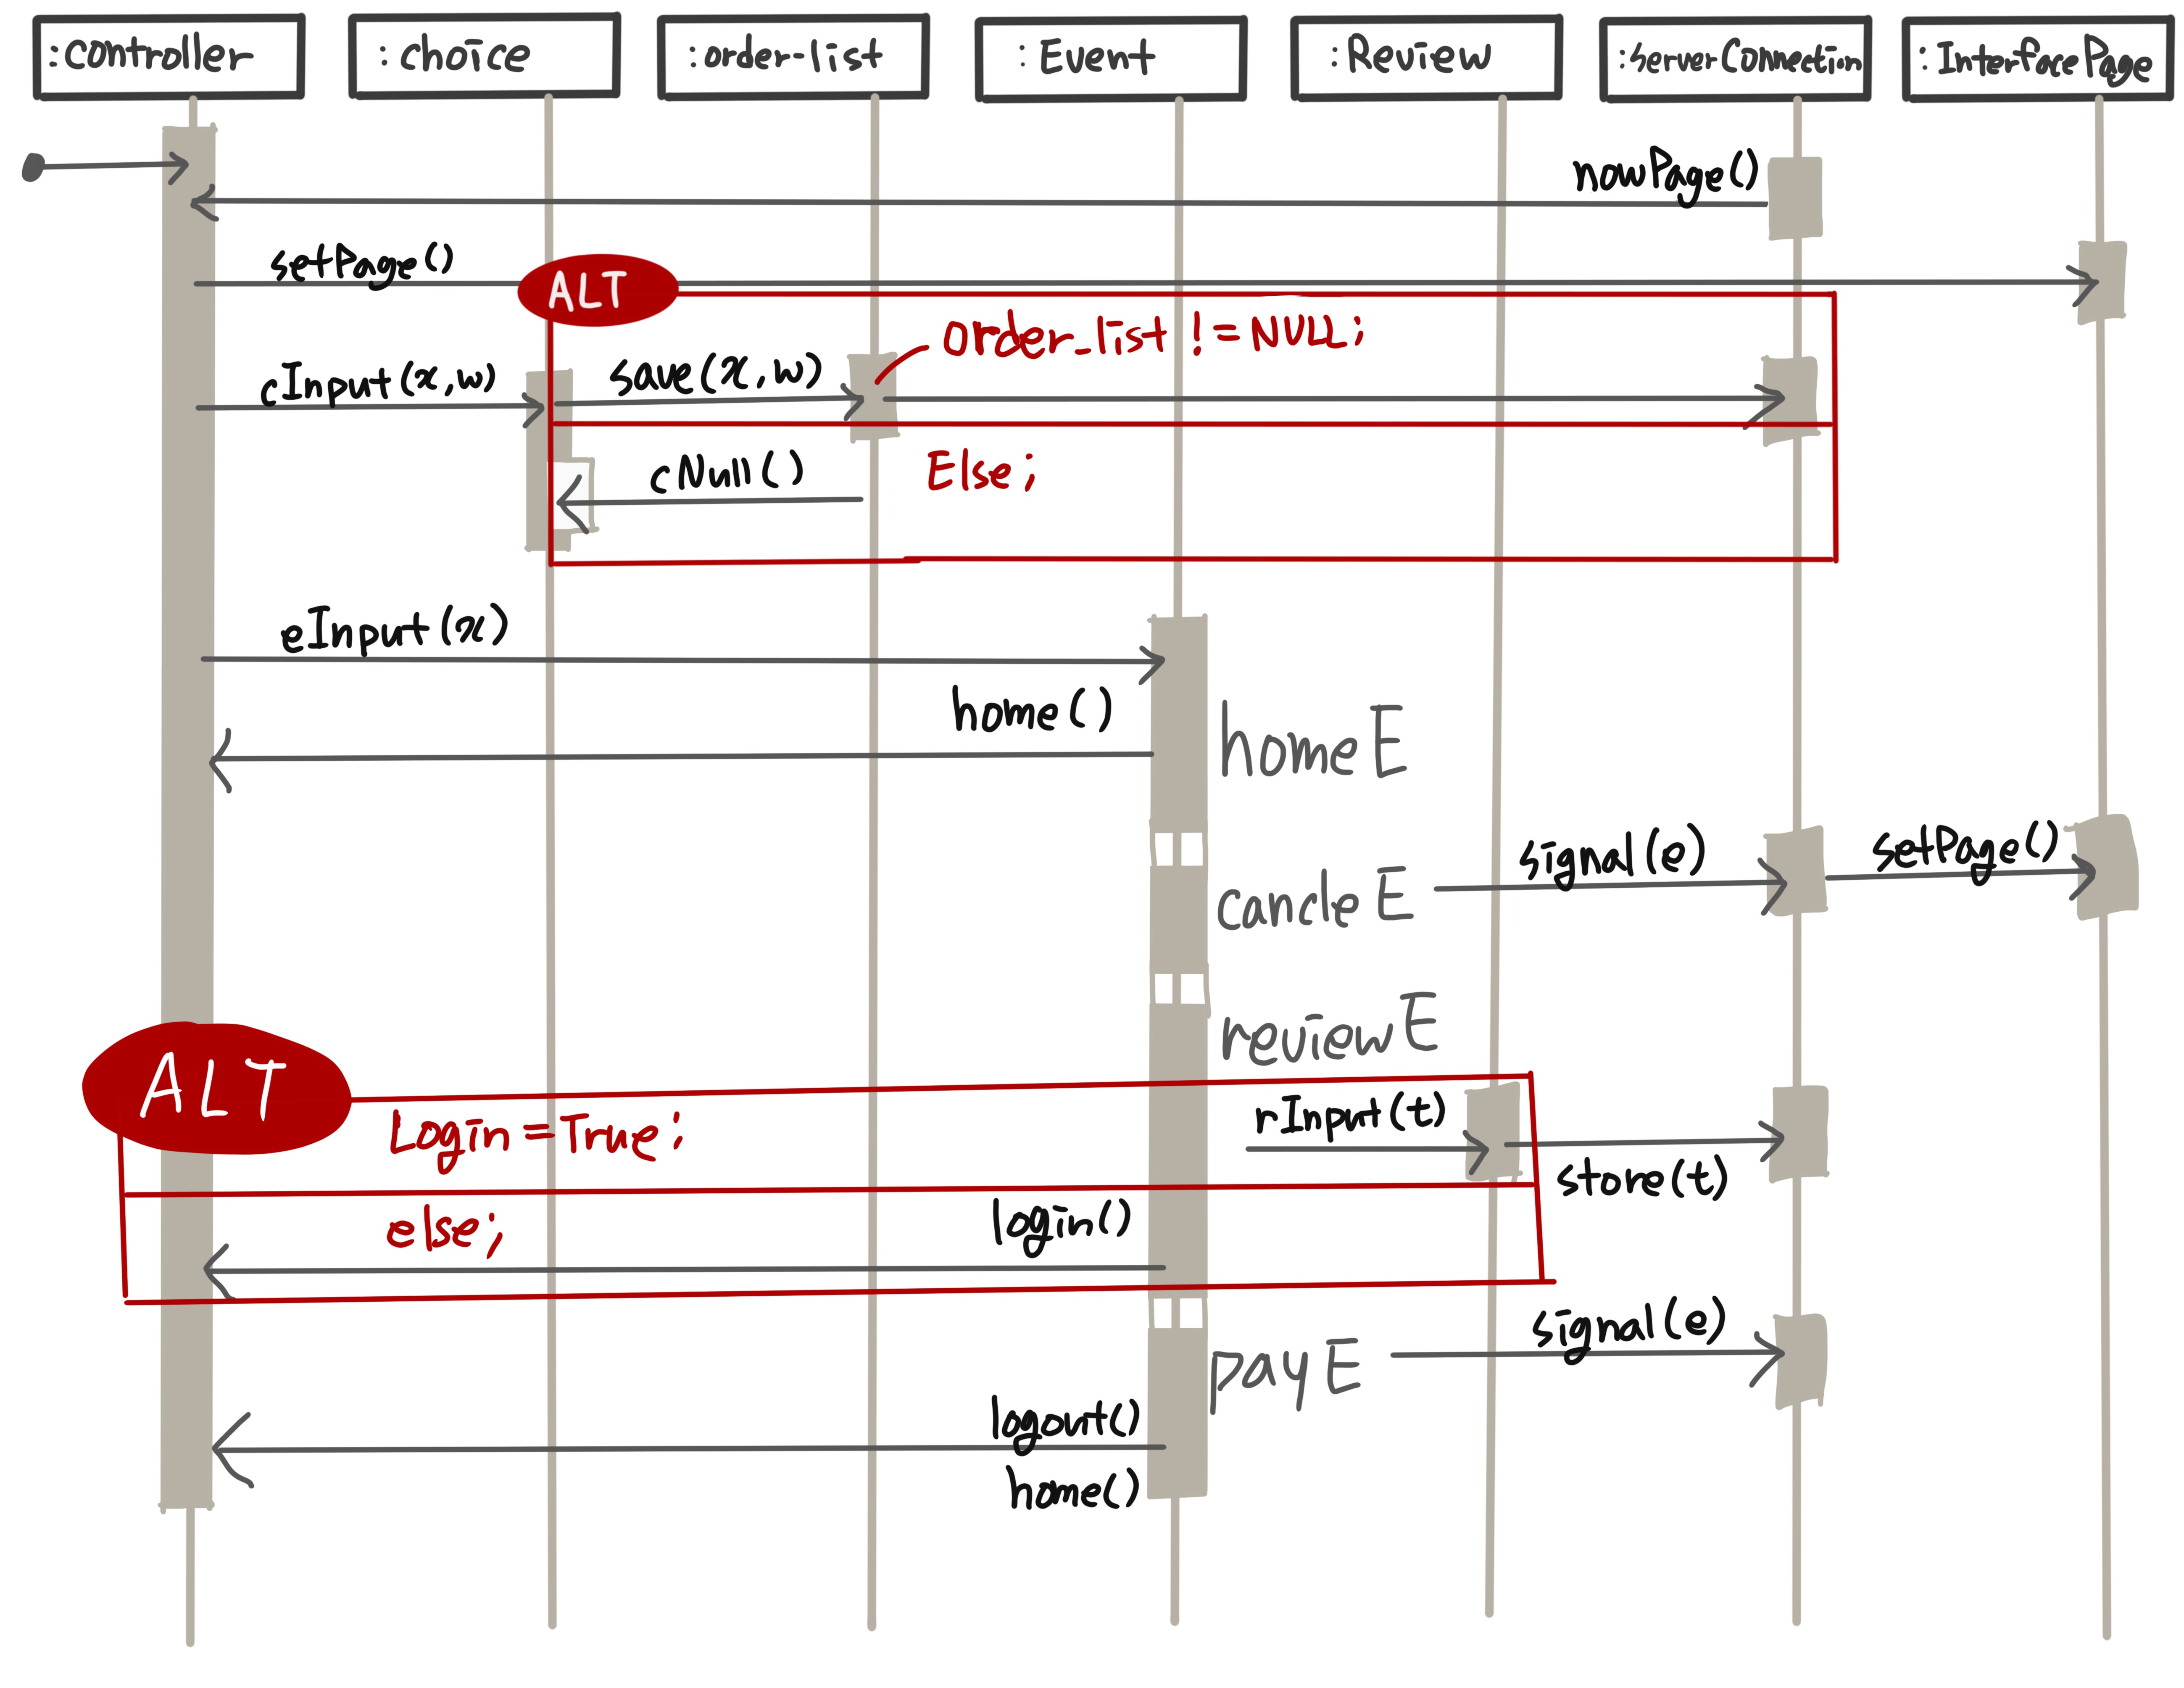 :controller
:choice
:order-list
:Event
:Review
:serverConnection
:InterfacePage
nowPage()
setPage()
ALT
order_list != NULL;
cInput(x,w)
save(x,w)
cNull()
Else;
eInput(x)
home()
homeE
signal(e)
setPage()
cancleE
reviewE
ALT
Login=True;
rInput(t)
store(t)
else;
login()
signal(e)
payE
logout()
home()